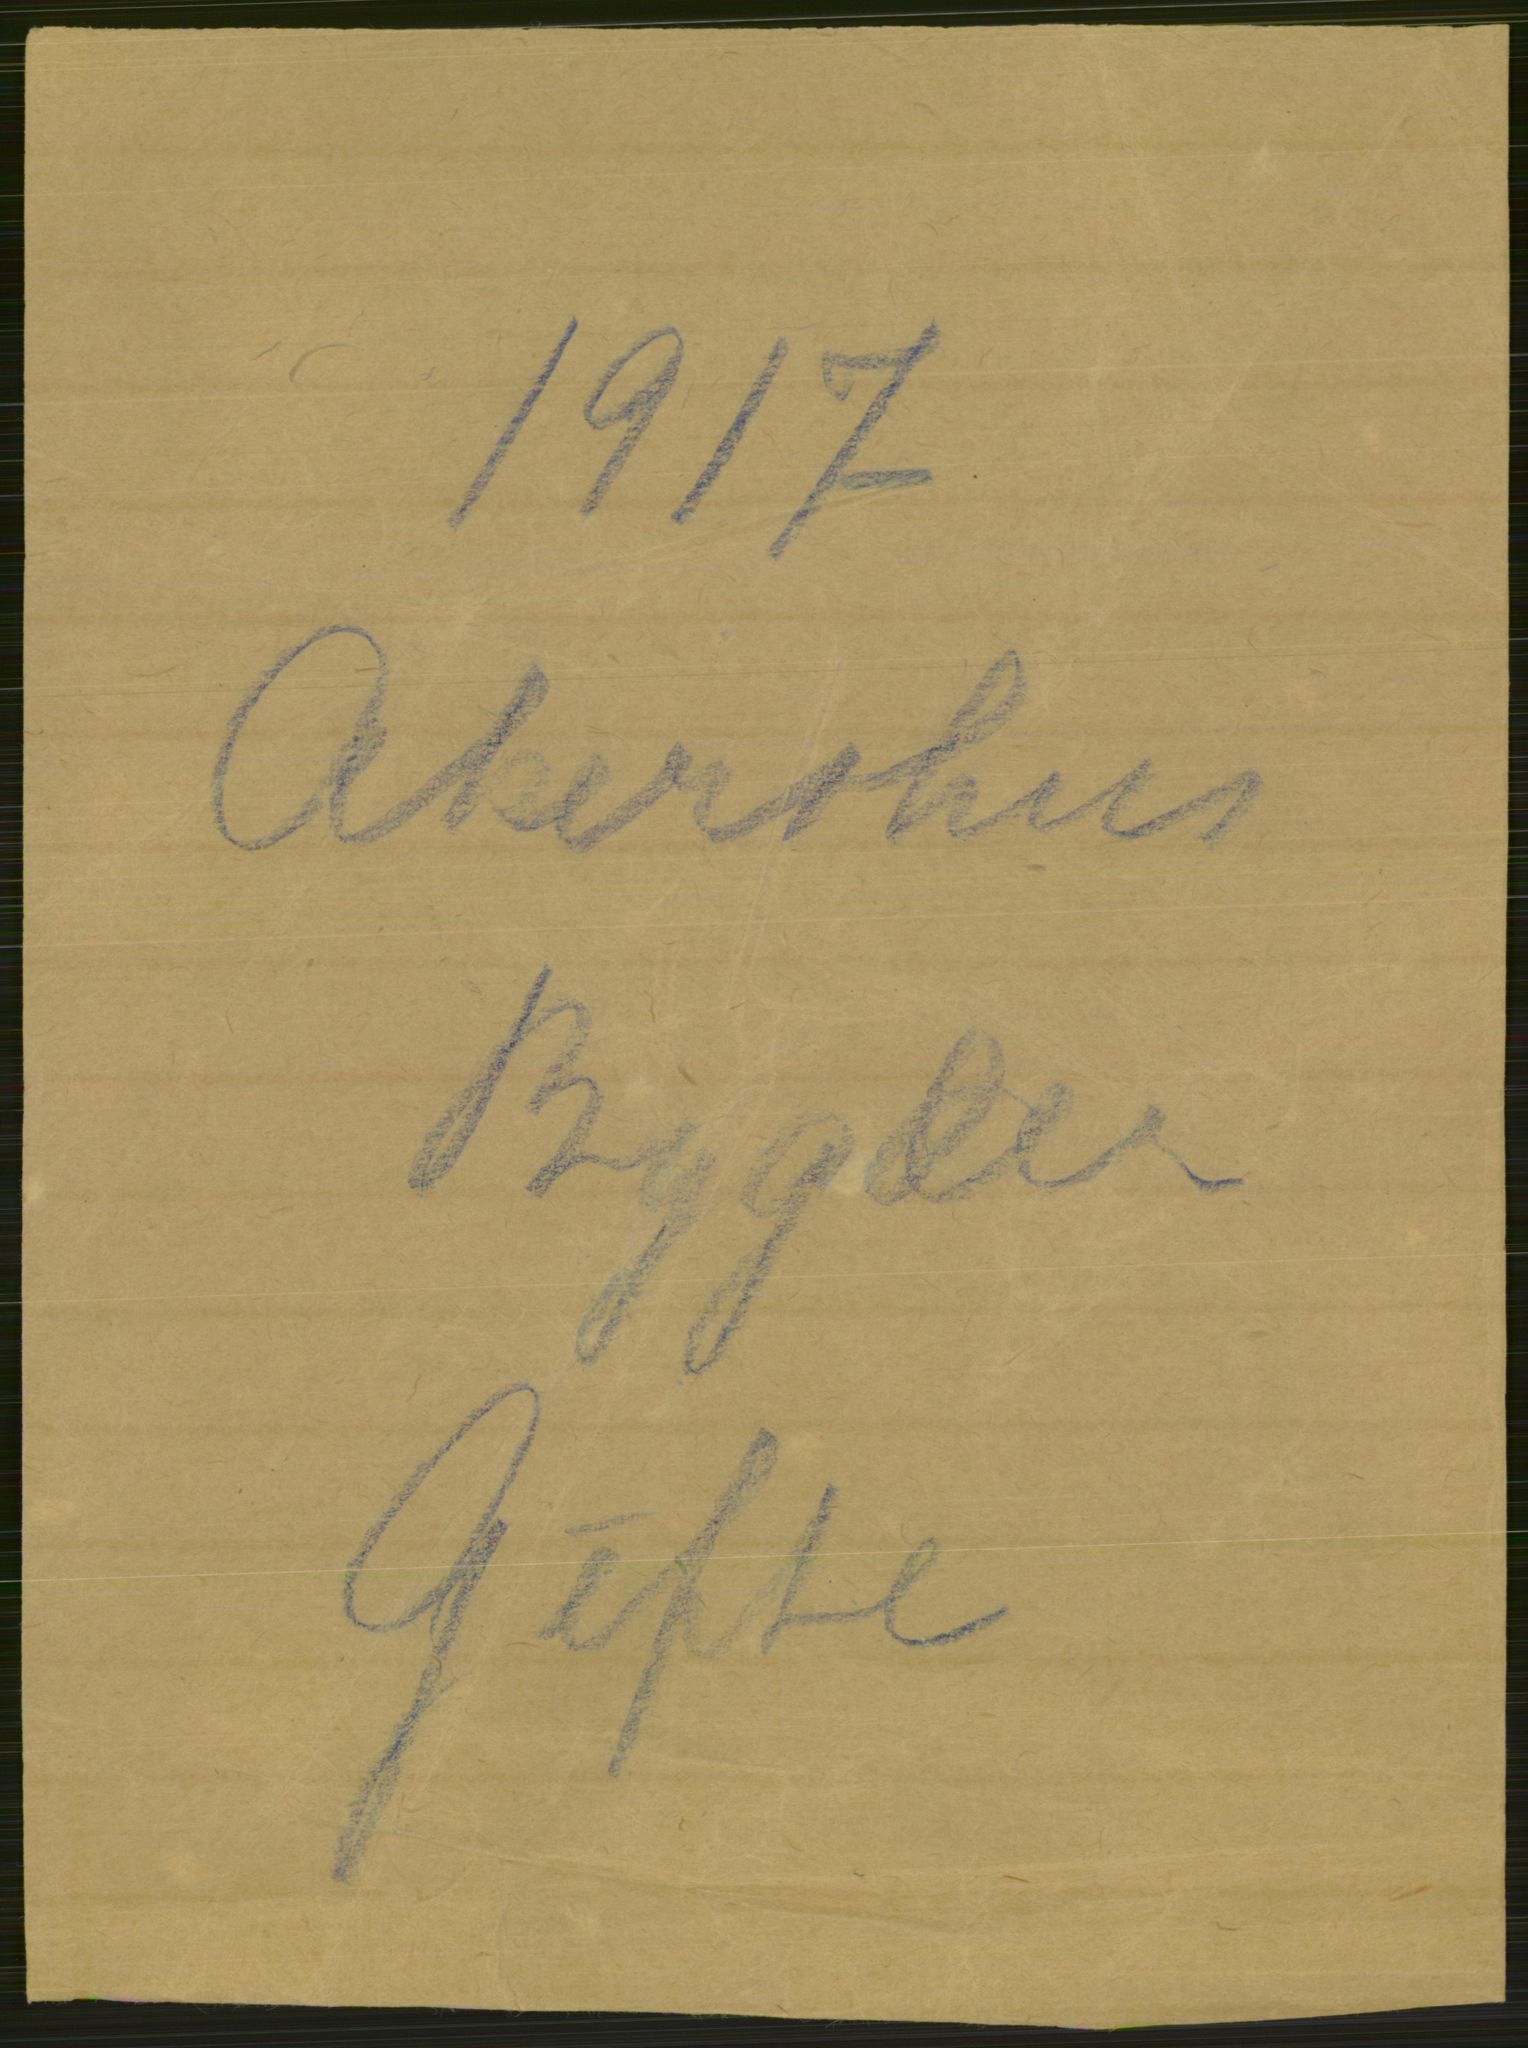 1917
Akershus
Bygder
Gifte